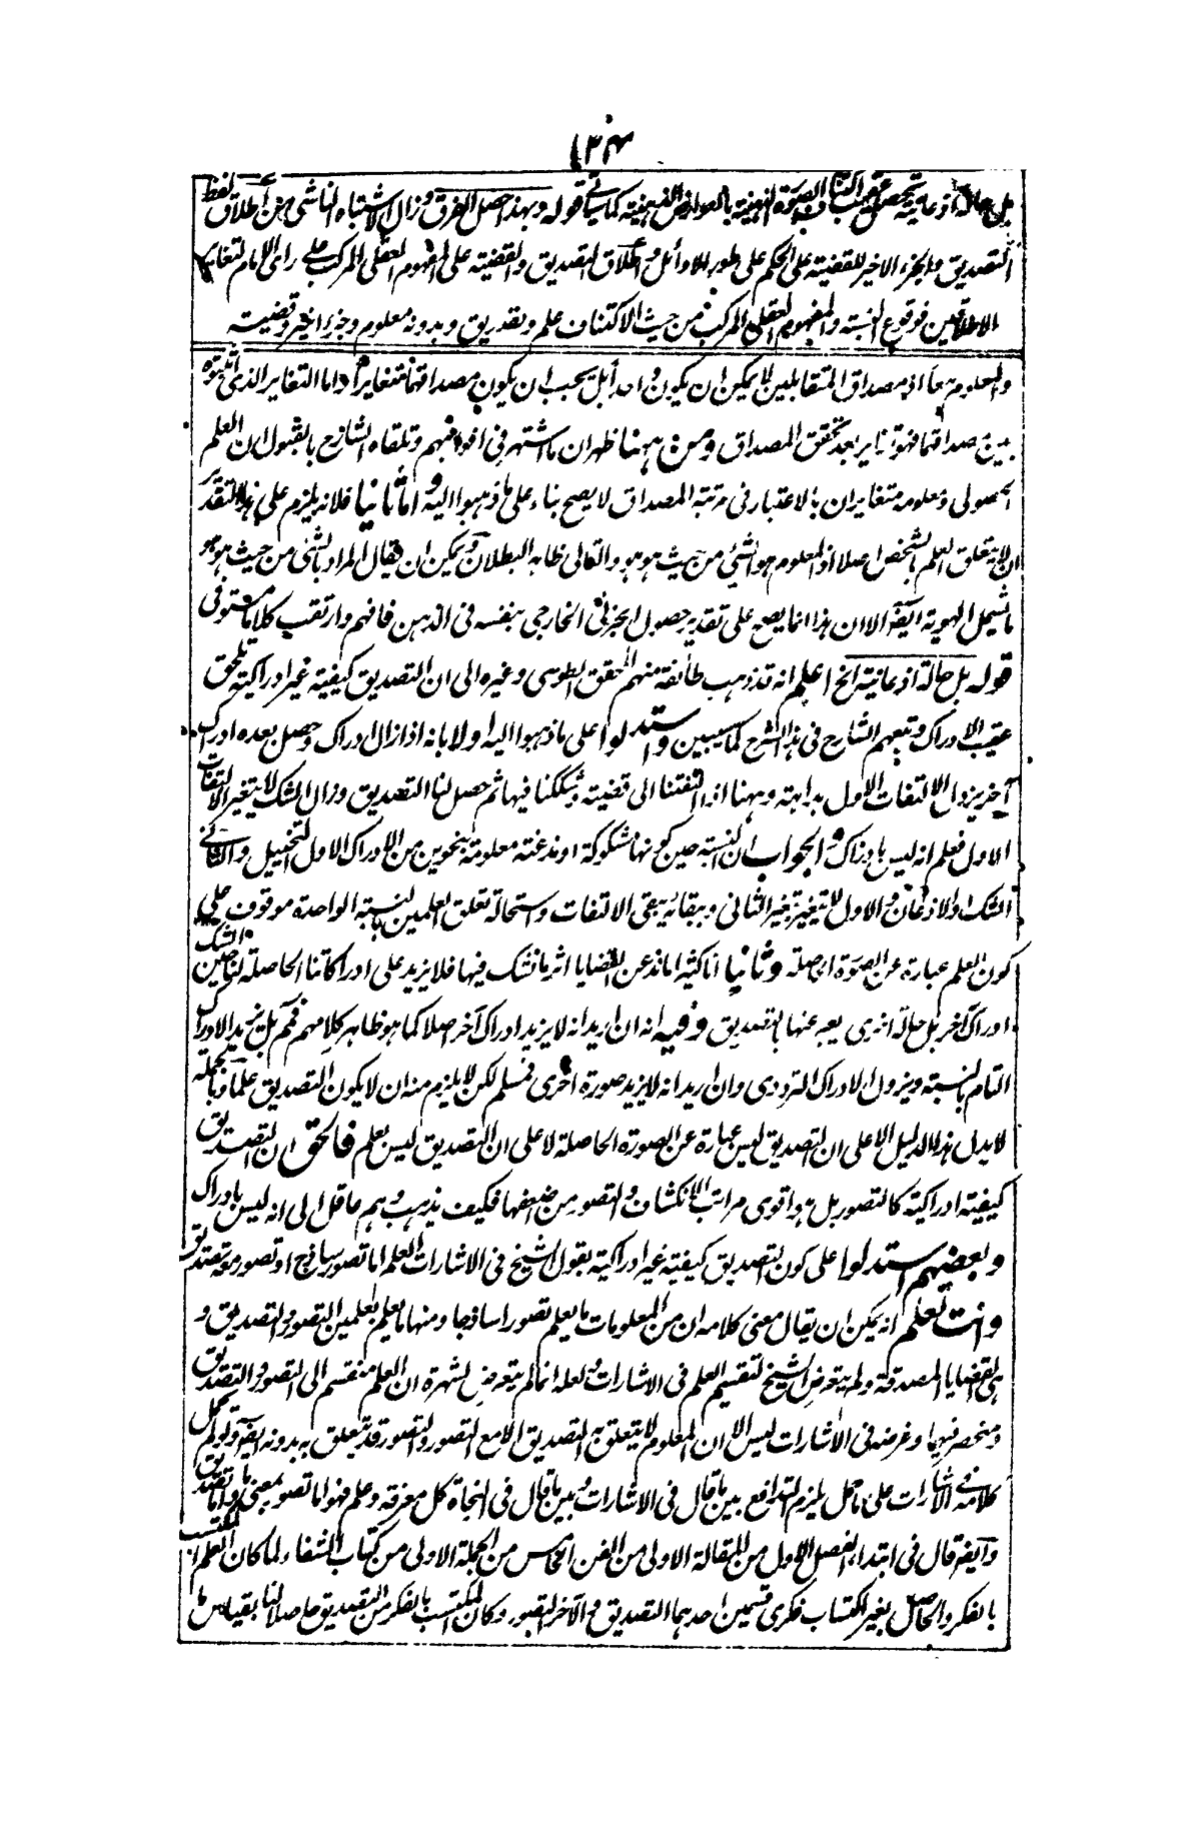 بل حالة اذعانية تحصل عقيب الصورة الذهنية بالعوارض الذهنية كما سياتي قوله وبهذا حصل الفرق وزال الاشتباه الناشي من اطلاق لفظ
التصديق والجزء الاخير للقضية على الحكم على طور الاوائل واطلاق التصديق والقضية على المفهوم العقلي المركب على راى الامام لتغاير
الاطلاقين فوقوع النسبة والمفهوم العقلي المركب من حيث الاكتناف علم وتصديق وبدونه معلوم وجزء اخير وقضية
والمعلوم معا اذ مصداق المتقابلين لا يمكن ان يكون واحدا بل يجب ان يكون مصداقهما متغايرا واما التغاير الذي اثبتوه
بين مصداقهما فهو تغاير بعد تحقق المصداق ومن ههنا ظهر ان ما اشتهر في افواههم وتلقاه الشارح بالقبول ان العلم
الحصولي ومعلومه متغايران بالاعتبار في مرتبة المصداق لا يصح بناء على ما ذهبوا اليه واما ثانيا فلانه يلزم على هذا التقدير
ان لا يتعلق العلم بالشخص اصلا اذ المعلوم هو الشئ من حيث هو هو والتالي ظاهر البطلان ويمكن ان يقال المراد بالشئ من حيث هو هو
ما يشمل الهوية ايضا الا ان هذا انما يصح على تقدير حصول الجزئي الخارجي بنفسه في الذهن فافهم وارتقب كلاما مستوفى
قوله بل حالة اذعانية الخ اعلم انه قد ذهب طائفة منهم المحقق الطوسي وغيره الى ان التصديق كيفية غير ادراكية تلحق
عقيب الادراك وتبعهم الشارح في هذا الشرح كما سيبين واستدلوا على ما ذهبوا اليه اولا بانه اذا زال ادراك وحصل بعده ادراك
آخر يزول الالتفات الاول بداهة وههنا اذا التفتنا الى قضية وشككنا فيها ثم حصل لنا التصديق وزال الشك لا يتغير الالتفات
الاول فعلم انه ليس بادراك والجواب ان النسبة حين كونها مشكوكة او مذعنة معلومة بنحوين من الادراك الاول التخييل والثاني
الشك او الاذعان والاول لا يتغير بتغير الثاني وببقائه يبقى الالتفات واستحالة تعلق العلمين بالنسبة الواحدة موقوف على
كون العلم عبارة عن الصورة الحاصلة وثانيا انا كثيرا ما نذعن القضايا اثر ما نشك فيها فلا يزيد على ادراكاتنا الحاصلة لنا حين الشك
ادراك آخر بل حالة اخرى يعبر عنها بالتصديق وفيه انه ان اريد انه لا يزيد ادراك آخر اصلا كما هو ظاهر كلامهم فمم بل يزيد الادراك
التام بالنسبة ويزول الادراك الترددي وان اريد انه لا يزيد صورة اخرى فمسلم لكن لا يلزم منه ان لا يكون التصديق علما وبالجملة
لا يدل هذا الدليل الا على ان التصديق ليس عبارة عن الصورة الحاصلة لا على ان التصديق ليس بعلم فالحق ان التصديق
كيفية ادراكية كالتصور بل هو اقوى مراتب الانكشاف والتصور من ضعيفها فكيف يذهب وهم عاقل الى انه ليس بادراك
وبعضهم استدلوا على كون التصديق كيفية غير ادراكية بقول الشيخ في الاشارات العلم اما تصور ساذج او تصور معه تصديق
وانت تعلم انه يمكن ان يقال معنى كلامه ان من المعلومات ما يعلم تصورا ساذجا ومنها ما يعلم بعلمين التصور والتصديق و
هي القضايا المصدقة ولم يتعرض الشيخ لتقسيم العلم في الاشارات ولعله انما لم يتعرض لشهرة ان العلم منقسم الى التصور والتصديق
ومنحصر فيهما وغرضه في الاشارات ليس الا ان المعلوم لا يتعلق به التصديق الا مع التصور والتصور قد يتعلق به بدونه ايضا ولو لم يحمل
كلامه في الاشارات على ما يحمل يلزم التدافع بين ما قال في الاشارات وبين ما قال في النجاة كل معرفة وعلم فهو اما تصور بمعنى ما واما تصديق
وايضا قال في ابتداء الفصل الاول من المقالة الاولى من الفن الخامس من الجملة الاولى من كتاب الشفاء لما كان العلم المكتسب
بالفكر والحاصل بغير اكتساب فكري قسمين احدهما التصديق والآخر التصور وكان المكتسب بالفكر من التصديق حاصلا لنا بقياس ما